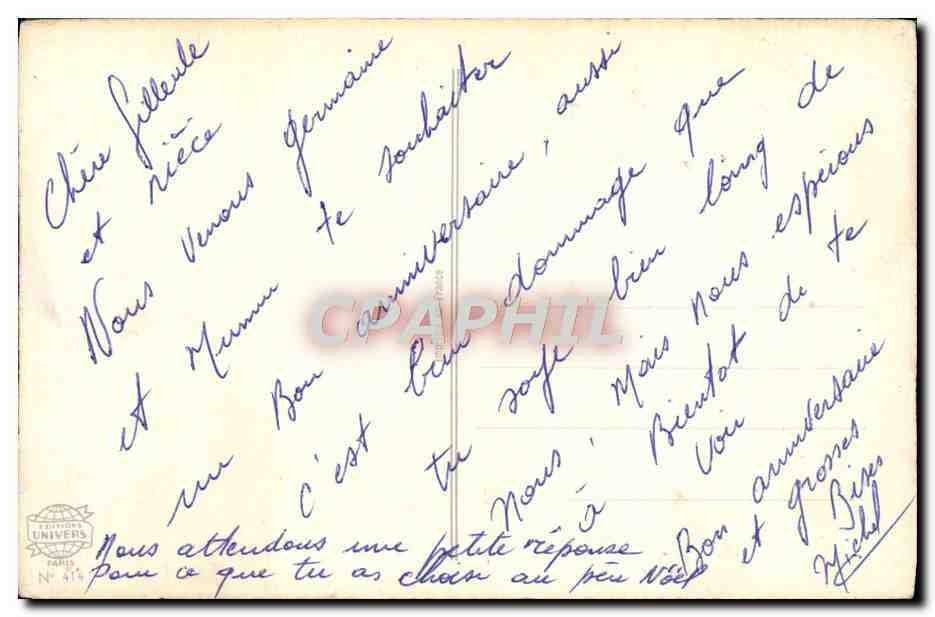 Chère filleule
et nièce
Nous venous germaine
et Mumu te souhaiter
un Bon anniversaire, aussi
c'est bien dommage que
tu soye bien loing de
Nous, mais nous espérious
à Bientot de te
voir
Bon anniversaire
et grosses
Bises
Michel
Nous attendons une petite réponse
pour ce que tu as choisi au père Nöel
EDITIONS
UNIVERS
PARIS
N° 414
France
CPAPHIL